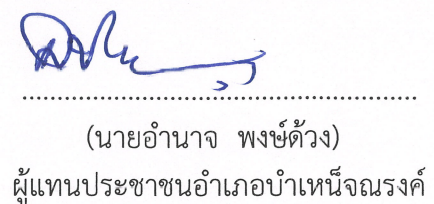 (นายอำนาจ พงษ์ด้วง)
ผู้แทนประชาชนอำเภอบำเหน็จณรงค์